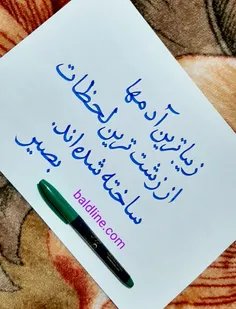 زیباترین آدمها
از زشت ترین لحظات
ساخته شده‌اند.
بصیر
baldline.com